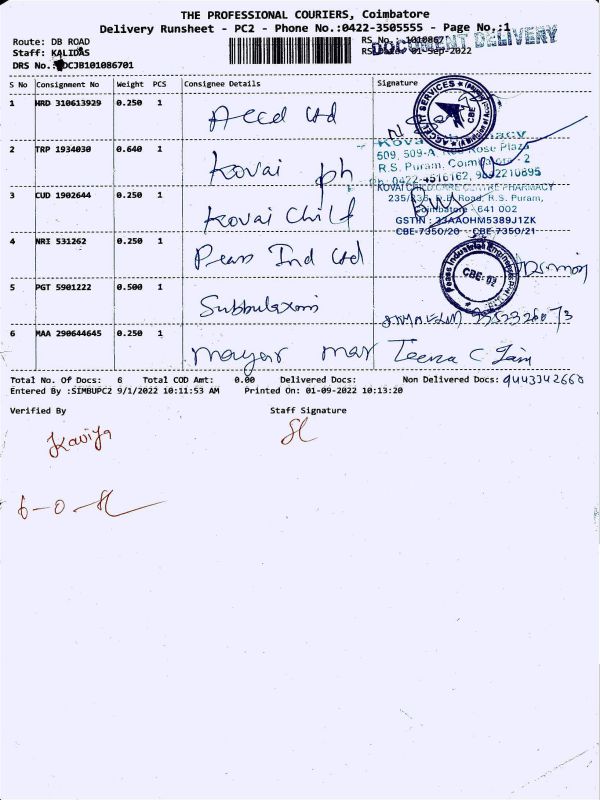 THE PROFESSIONAL COURIERS, Coimbatore
Delivery Runsheet - PC2 - Phone No.:0422-3505555 - Page No.:1
Route: DB ROAD
RS No. :1010867
DOCUMENT DELIVERY
Staff: KALIDAS
01-Sep-2022
DRS No.: DCJB101086701
S No Consignment No Weight PCS Consignee Details Signature
1 HRD 310613929 0.250 1
2 TRP 1934030 0.640 1 Kovai ph
509, 509-A, Rose Plaza
R.S. Puram, Coimbatore - 2
ph: 0422-4516162,
3 CUD 1902644 0.250 1 Kovai Chil
KOVAI CHILD CARE CENTRE PHARMACY
235/ R.S. Puram,
Coimbatore 641 002
GSTIN : 33AAOHM5389J1ZK
CBE-7350/20 CBE-7350/21
4 NRI 531262 0.250 1 Peass Ind Ltd
Peass Industrial Engineers
CBE-02
5 PGT 5901222 0.500 1 Subbulaxmi
6 MAA 290644645 0.250 1 mayar mar Teena C Jain
Total No. Of Docs: 6 Total COD Amt: 0.00 Delivered Docs: Non Delivered Docs: 9443342660
Entered By :SIMBUPC2 9/1/2022 10:11:53 AM Printed On: 01-09-2022 10:13:20
Verified By Staff Signature
Kaviya
6-0-